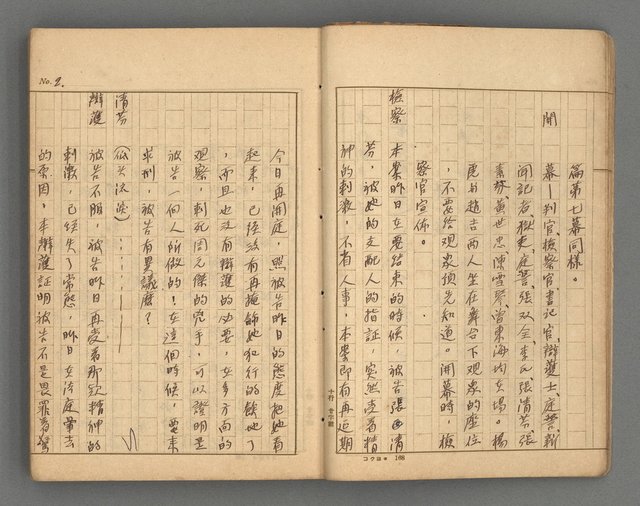 篇第七幕同樣。
開　幕—判官、檢察官、書记官、辯護士、庭警、新
聞記者、
張双全、李氏、張清芳、張
黃世忠、陳雪琴、曾東海均在場。楊
吉兩人坐在舞台下观衆的座位
，不要给观衆預先知道。開幕時，檢
察官宣佈。
檢察　本案昨日在要結束的時候，被告張清
芬，被她的支配人的指証，突然受着精
神的刺激，不省人事，本案即有再延期
コクヨ 168
十行 廿字詰
No. 2.
今日再開庭，照被告昨日的態度把她看
起來，已經没有再掩飾她犯行的餘地了
，而且也没有辯護的必要，在多方向的
观察，刺死周元傑的兇手，可以證明是
被告一個人所做的！在這個時候，要來
求刑，被告有異議麽？
清芬　（低头沒談）
辯護　被告不服，被告昨日再受着那欵精神的
刺激，已經失了常態，昨日在法庭
的原因，本辯護証明被告不是畏罪